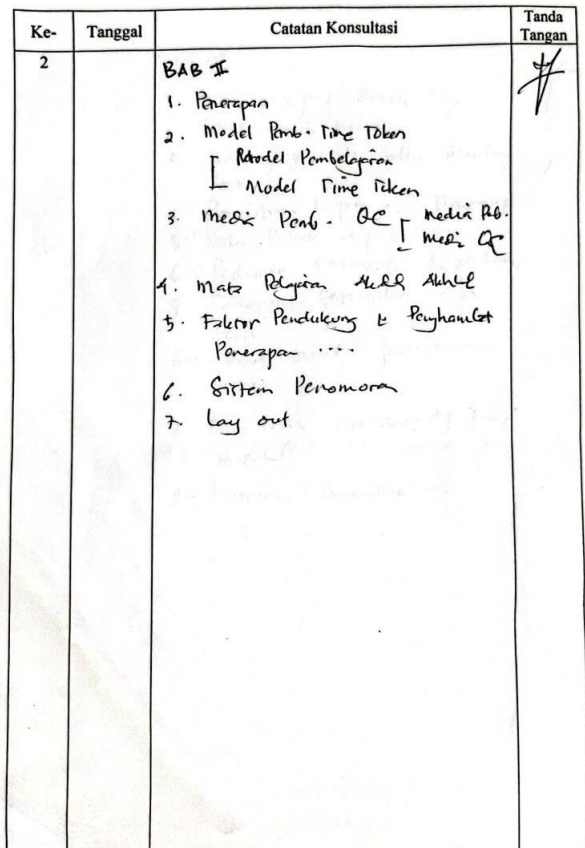 Ke- Tanggal Catatan Konsultasi Tanda Tangan
2
BAB II
1. Penerapan
2. Model Pemb. Time Token
Model Pembelajaran
Model Time Token
3. Media Pemb. QC
Media Pb.
Medi QC
4. Mata Pelajaran
5. Faktor Pendukung & Penghambat
Penerapan .....
6. Sistem Penomoran
7. Lay out